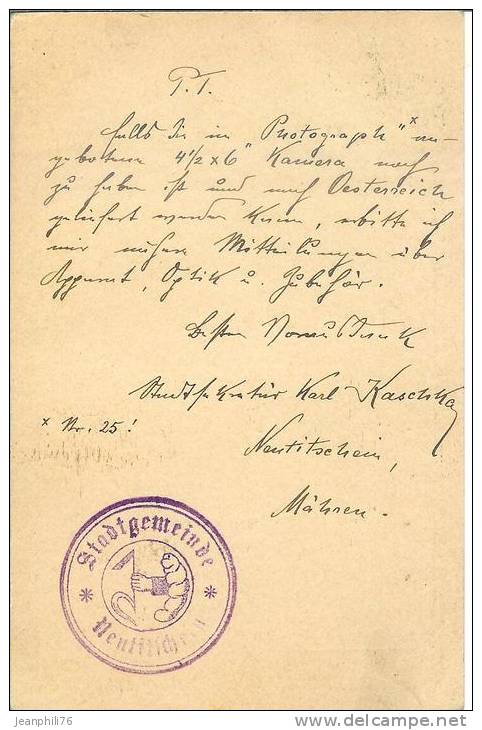 P.T.
Falls die im "Photograph"ˣ an-
gebotene 4½x6" Kamera noch
zu haben ist und nach Oesterreich
geliefert werden kann, erbitte ich
mir nähere Mitteilungen über
Apparat, Optik u. Zubehör.
Besten Voraus Dank
Stadtsekretär Karl Kaschka
x Nr. 25!
Neutitschein,
Mähren.
Stadtgemeinde
Neutitschein
jeanphili76
delcampe.net